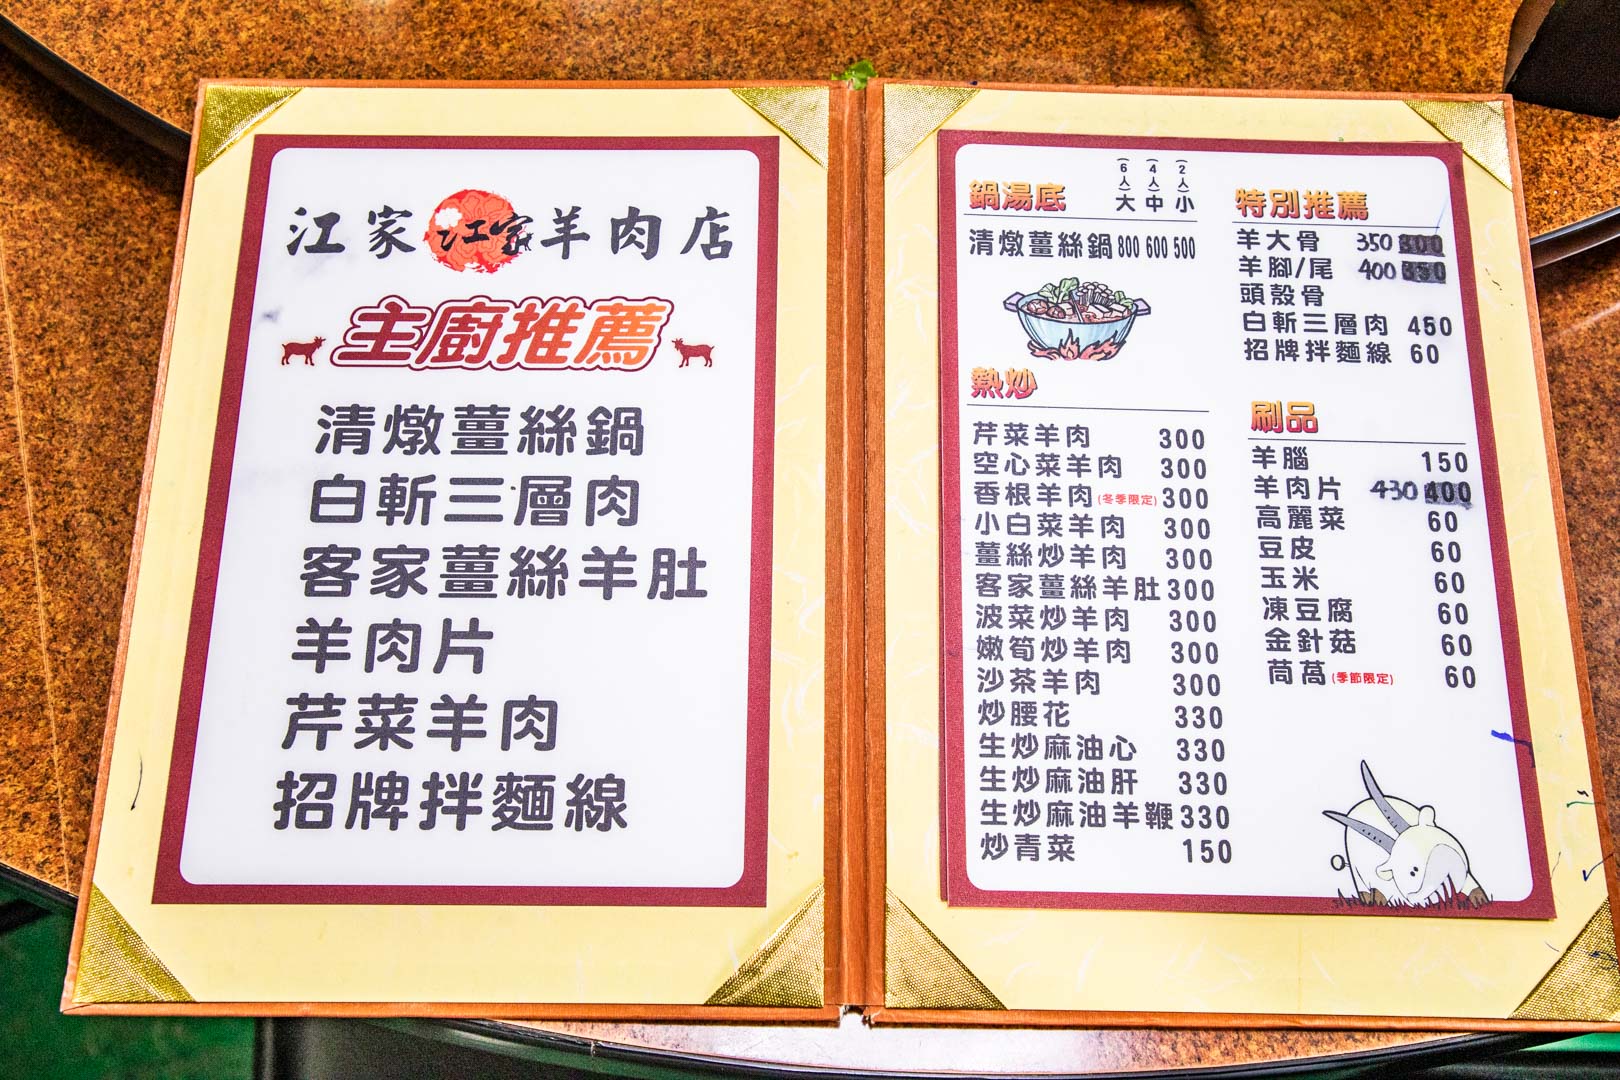 江家 江家 羊肉店
主廚推薦
清燉薑絲鍋
白斬三層肉
客家薑絲羊肚
羊肉片
芹菜羊肉
招牌拌麵線
鍋湯底 (6人)大 (4人)中 (2人)小
清燉薑絲鍋 800 600 500
熱炒
芹菜羊肉 300
空心菜羊肉 300
香根羊肉(冬季限定) 300
小白菜羊肉 300
薑絲炒羊肉 300
客家薑絲羊肚 300
波菜炒羊肉 300
嫩筍炒羊肉 300
沙茶羊肉 300
炒腰花 330
生炒麻油心 330
生炒麻油肝 330
生炒麻油羊鞭 330
炒青菜 150
特別推薦
羊大骨 350 300
羊腳/尾 400 350
頭殼骨
白斬三層肉 450
招牌拌麵線 60
刷品
羊腦 150
羊肉片 430 400
高麗菜 60
豆皮 60
玉米 60
凍豆腐 60
金針菇 60
茼萵(季節限定) 60